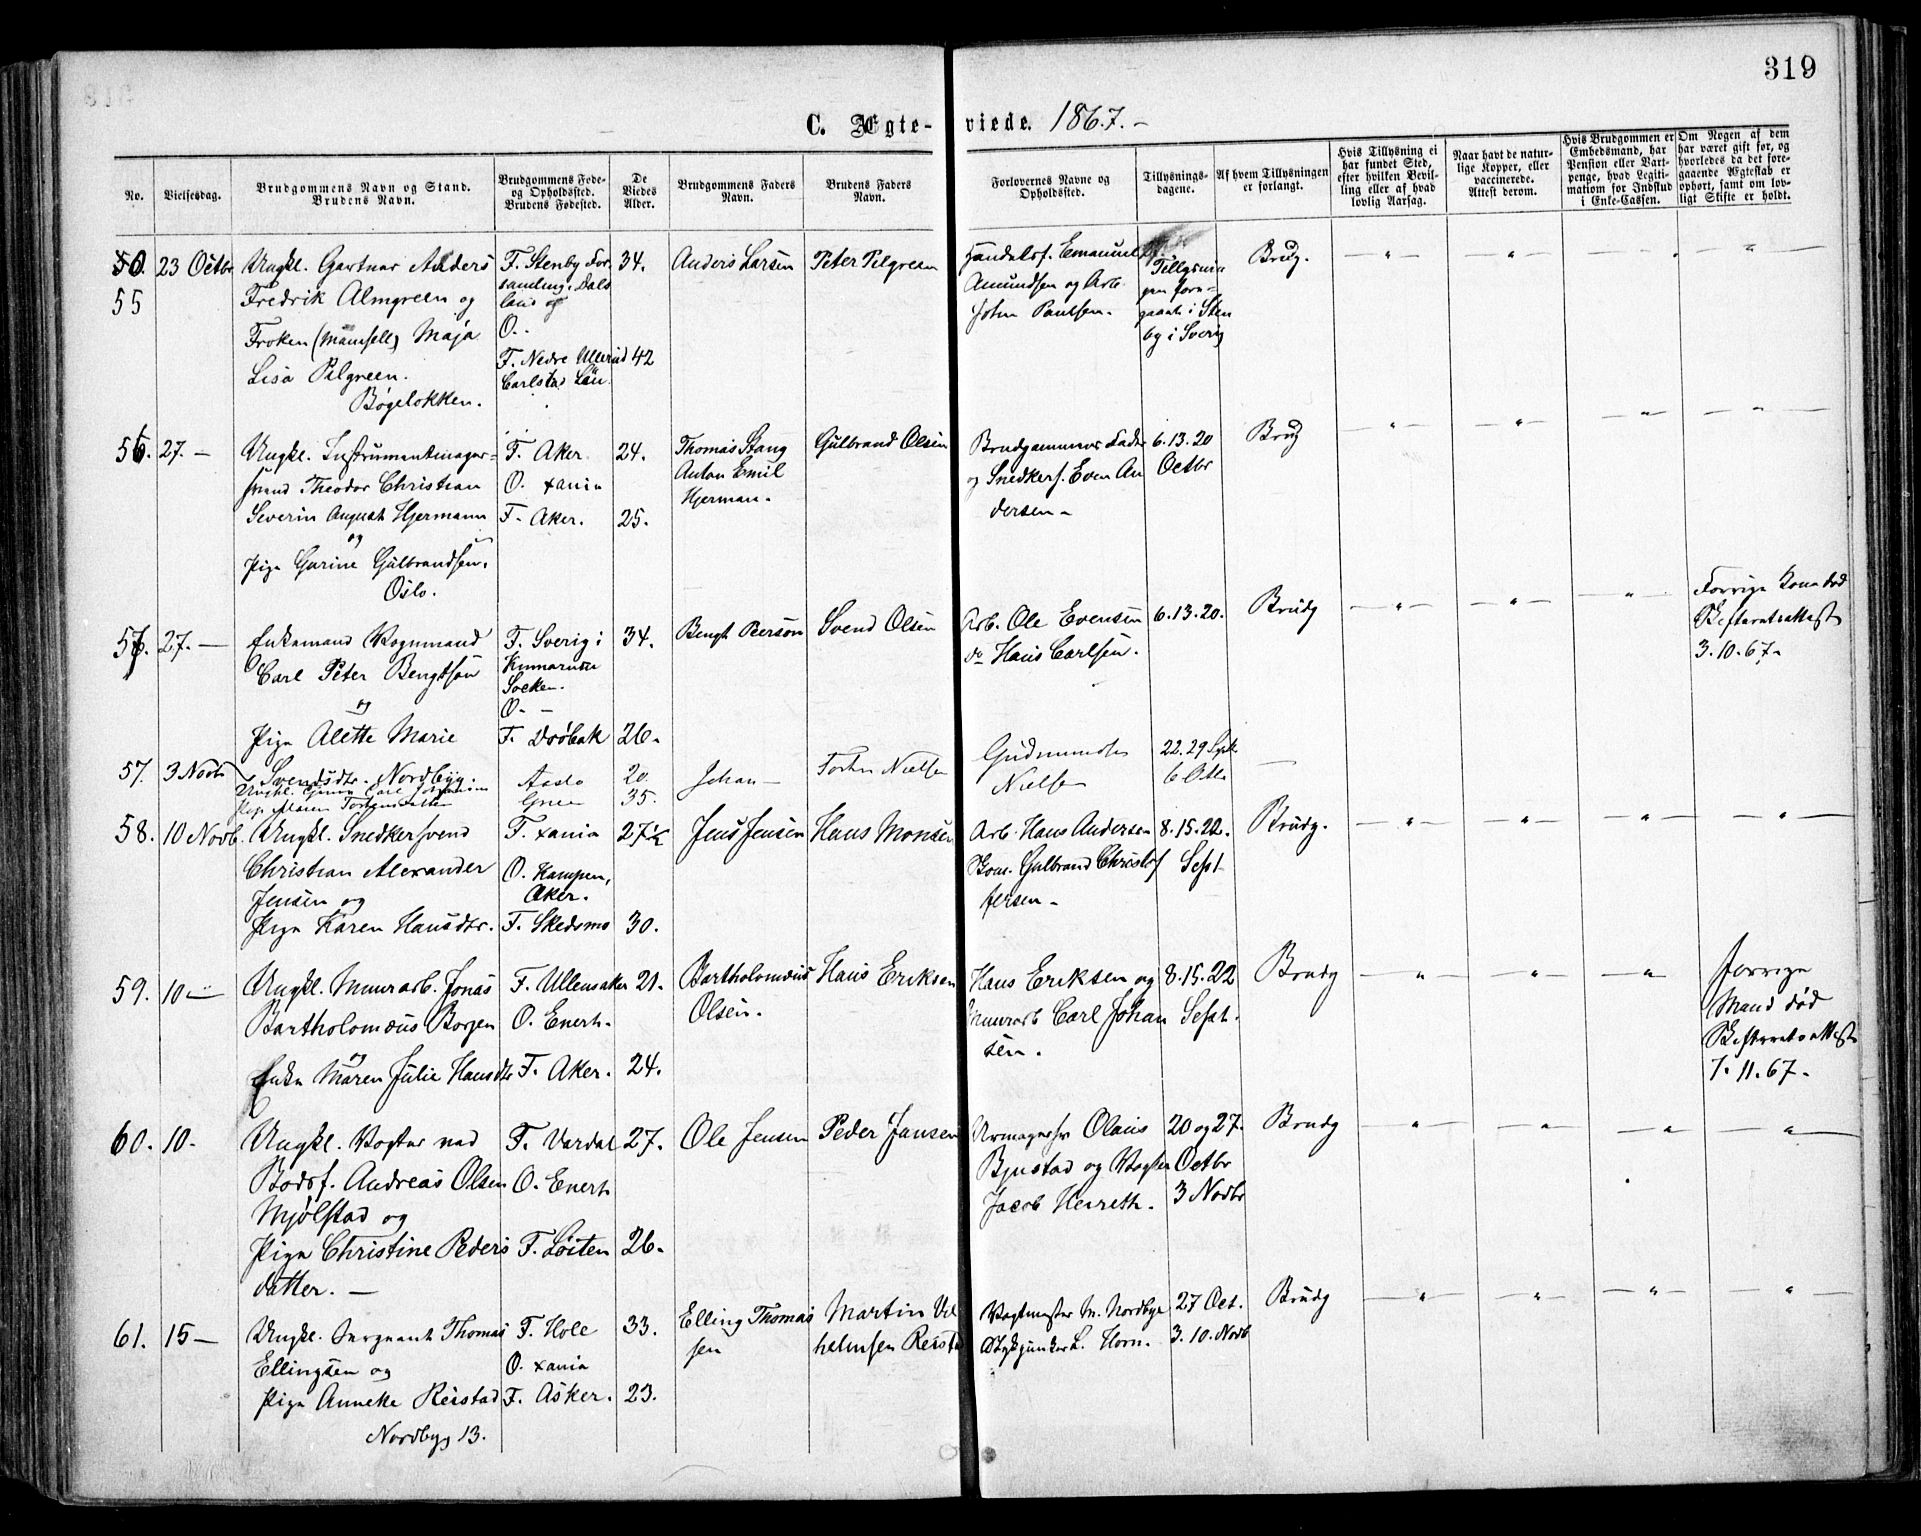 319
C. Ægte-viede. 1867.-
No.
Vielsesdag.
Brudgommens Navn og Stand.
Brudens Navn.
Brudgommens Føde-
og Opholdssted.
Brudens Fødested.
De
Viedes
Alder.
Brudgommens Faders
Navn.
Brudens Faders
Navn.
Forlovernes Navne og
Opholdssted.
Tillysnings-
dagene.
Af hvem Tillysningen
er forlangt.
Hvis Tillysning ei
har fundet Sted,
efter hvilken Bevil-
ling eller af hvad
lovlig Aarsag.
Naar havt de natur-
lige Kopper, eller
vaccinerede.
Attest derom.
Hvis Brudgommen er
Embedsmand, har
Pension eller Vart-
penge, hvad Legiti-
mation for Indskud
i Enke-Cassen.
Om Nogen af dem
har været gift før, og
hvorledes da det fore-
gaaende Ægteskab er
ophørt, samt om lov-
ligt Skifte er holdt.
55
23 Octbr
Ungkl. Gartner Anders
Fredrik Almgreen og
Frøken (Mamsell) Maja
Lisa Pilgreen.
Bøgeløkken.
F. Stenby For-
samling, Dals
land og
O. -
F. Nedre Ullerud
Carlstad Län.
34.
42
Anders Larsen
Peter Pilgreen
Handelsf. Emanuel
Amundsen og Arb.
John Paulsen.
Tillysnin
gen fore-
gaaet i Sten
by i Sverig
Brudg.
56. 27. -
Ungkl. Instrumentmager-
svend Theodor Christian
Severin August Hjermann
og
Pige Gurine Gulbrandsen.
Oslo.
F. Aker.
O. Xania
F. Aker.
24.
25.
Thomas Stang
Anton Emil
Hjerman.
Gulbrand Olsen
Brudgommens Fader
og Snedkers. Even An
dersen -
6.13.20
Octbr
Brudg
57. 27. -
Enkemand Vognmand
Carl Peter Bengtson
og
Pige Alette Marie
Svendsdtr. Nordbyg.
F. Sverig i
Socken.
O. -
F. Drøbak
34.
26.
Bengt Peerson
Svend Olsen
Arb. Ole Evensen
do Hans Carlsen.
6.13.20.
Brudg
Forrige Kone død
Skifteretsattest
3.10.67.
57. 3 Novbr
Ungkl. Carl Johansen
Pige Maren Torstensdatter
20.
35.
Johan -
Nielsen
Gudmundsen
Nielsen
22.29 Sept
6 Otb.
58. 10 Novb.
Ungkl. Snedkersvend
Christian Alexander
Jensen og
Pige Karen Hansdtr.
F. Xania
O. Kampen,
Aker.
F. Skedsmo
27½
30.
Jens Jensen
Hans Monsen
Arb. Hans Andersen
Kone. Gulbrand Christof
fersen -
8.15.22.
Sept
Brudg.
59. 10 -
Ungkl. Murarb. Jonas
Bartholomæus Borgen
og
Enke Maren Julie Hansdtr
F. Ullensaker
O. Enerh.
F. Aker.
21.
24.
Bartholomæus
Olsen.
Hans Eriksen
Hans Eriksen og
Murarb Carl Johan
sen.
8.15.22
Sept.
Brudg
Forrige
Mand død
Skifteretsattest
7.11.67.
60. 10-
Ungkl. Vogter ved
Bodsf. Andreas Olsen
Mjølstad og
Pige Christine Peders
datter. -
F. Vardal
O. Enerh
F. Løiten
27.
26.
Ole Jensen
Peder Jansen
Urmagersv Olaus
Bjustad og Vogter
Jacob Henreth.
20 og 27.
Octbr
3 Novbr
Brudg
61. 15 -
Ungkl. Sergeant Thomas
Ellingsen og
Pige Anneke Reistad
Nordbyg 13.
F. Hole
O. Xania
F. Asker.
33.
23.
Elling Thomas
sen
Martin Vil
helmsen Reistad
Vagtmester M. Nordbye
Stykjunker L. Horn.
27 Oct.
3.10. Novb
Brudg